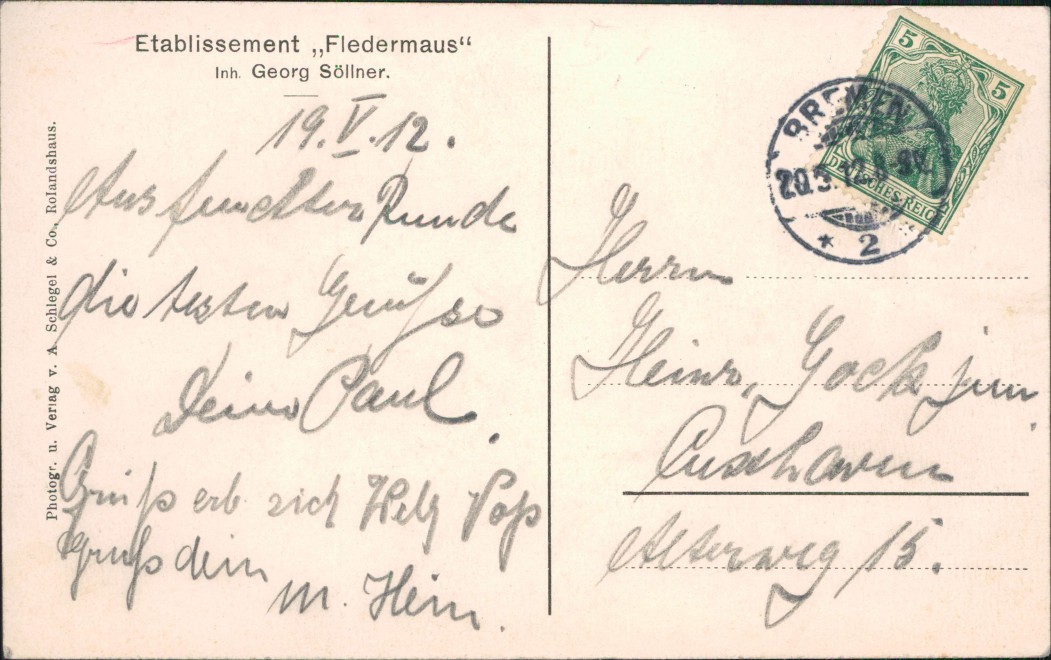 Etablissement „Fledermaus“
Inh. Georg Söllner.
19.V.12.
Aus feuchter Runde
die besten Grüße
Deine Paul.
Gruß erb sich
Gruß dein
M. Hein.
Photogr. u. Verlag v. A. Schlegel & Co., Rolandshaus.
5
5
DEUTSCHES REICH
BREMEN
* 2
Herrn
Heinr. Gock jun.
Cuxhaven
Alterweg 15.